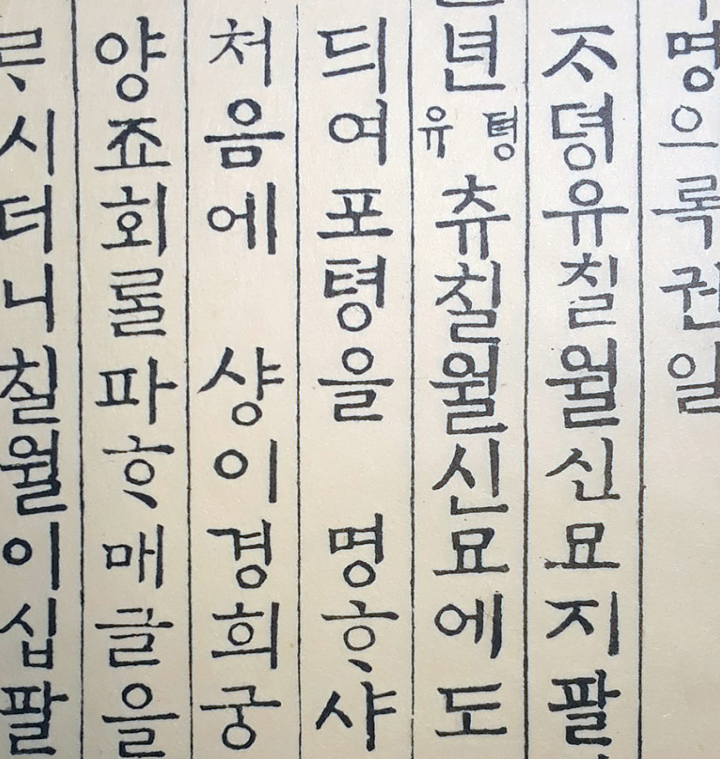 명으록권일
ᄌᆞ뎡유칠월신묘지팔
년뎡유츄칠월신묘에도
듸여포텽을 명ᄒᆞ샤
처음에 샹이경희궁
양죠회롤파ᄒᆞ매글을
ᄅᆞ시터니칠월이십팔